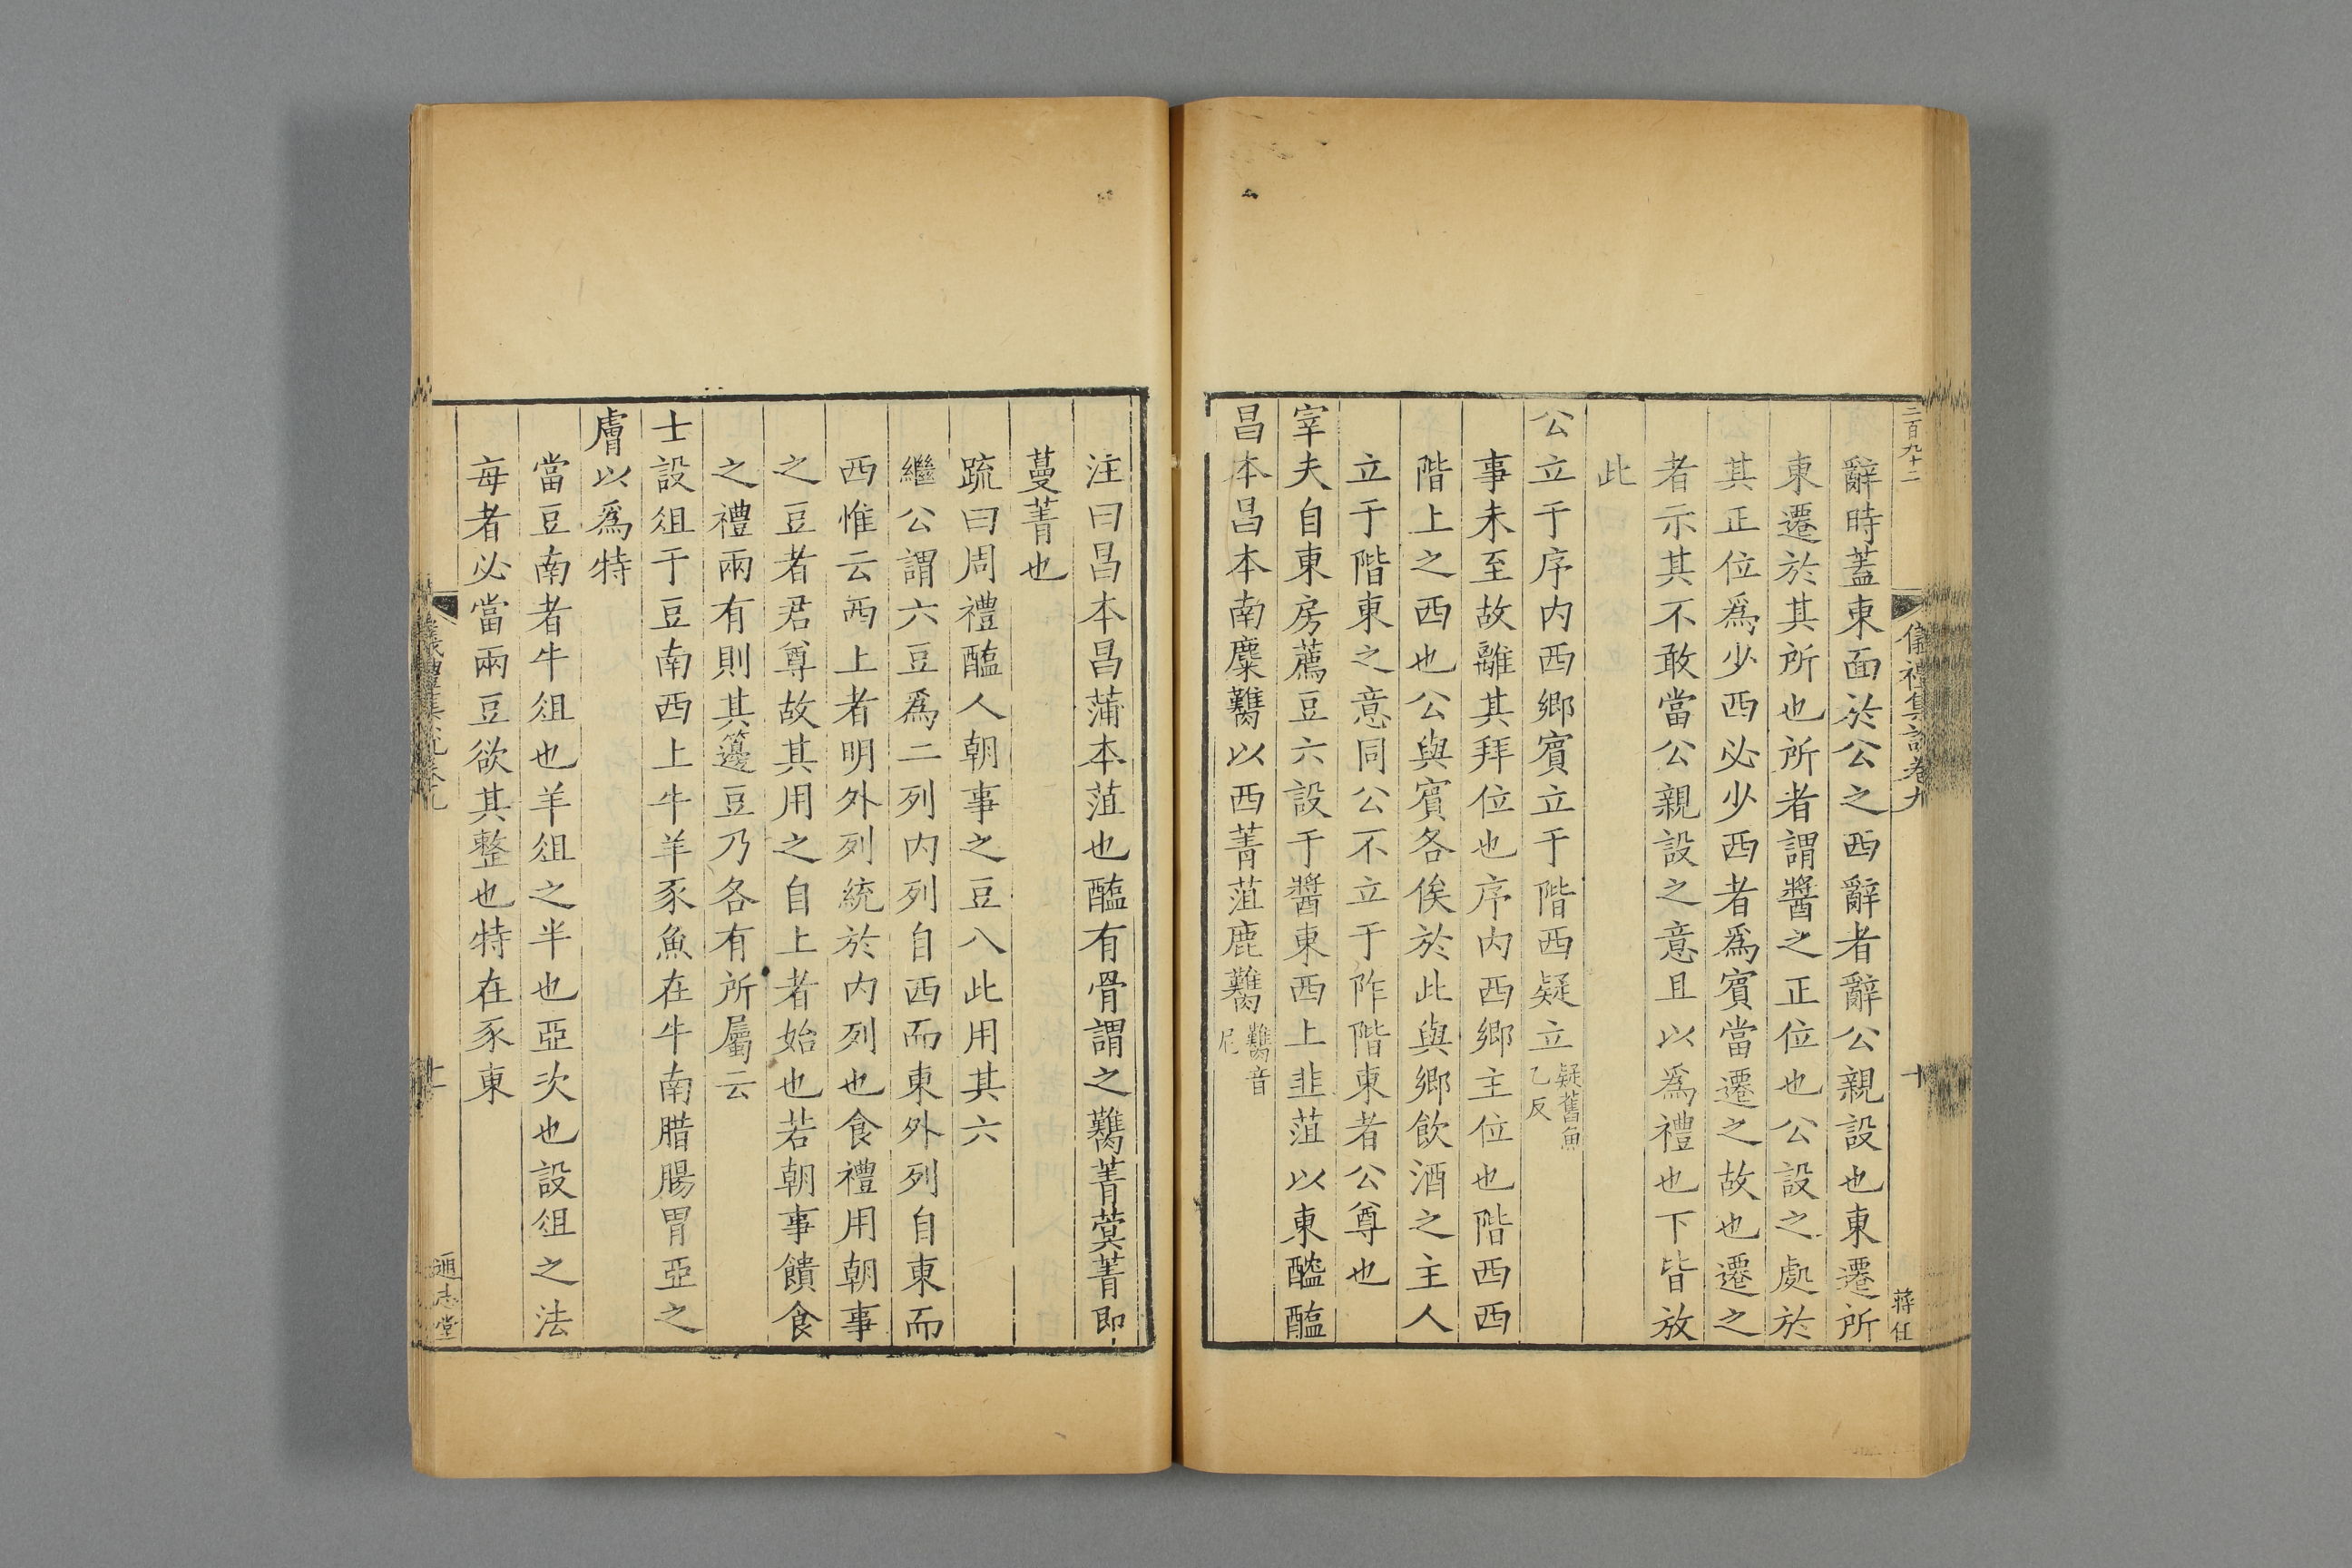 二百九十二
儀禮集說卷九
十
蔣任
辭時蓋東面於公之西辭者辭公親設也東遷所
東遷於其所也所者謂醬之正位也公設之處於
其正位爲少西必少西者爲賓當遷之故也遷之
者示其不敢當公親設之意且以爲禮也下皆放
此
公立于序内西鄉賓立于階西疑立疑舊魚乙反
事未至故離其拜位也序内西鄉主位也階西西
階上之西也公與賓各俟於此與鄉飲酒之主人
立于階東之意同公不立于阼階東者公尊也
宰夫自東房薦豆六設于醬東西上韭菹以東醓醢
昌本昌本南麋臡以西菁菹鹿臡臡音尼
注曰昌本昌蒲本菹也醢有骨謂之臡菁蓂菁即
蔓菁也
疏曰周禮醢人朝事之豆八此用其六
繼公謂六豆爲二列内列自西而東外列自東而
西惟云西上者明外列統於内列也食禮用朝事
之豆者君尊故其用之自上者始也若朝事饋食
之禮兩有則其籩豆乃各有所屬云
士設俎于豆南西上牛羊豕魚在牛南腊腸胃亞之
膚以爲特
當豆南者牛俎也羊俎之半也亞次也設俎之法
每者必當兩豆欲其整也特在豕東
通志堂